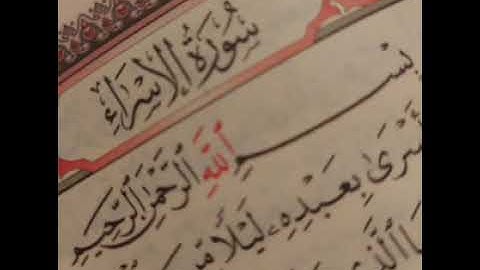 سُورَةُ الْإِسْرَاءِ
بِسْمِ اللَّهِ الرَّحْمَٰنِ الرَّحِيمِ
أَسْرَىٰ بِعَبْدِهِۦ لَيْلًا